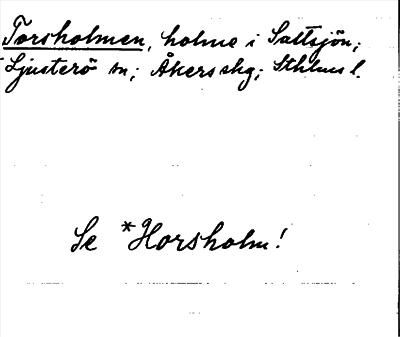 Torsholmen, holme i Saltsjön;
Ljusterö sn; Åkers skg; Sthlms l.
Se *Horsholm!